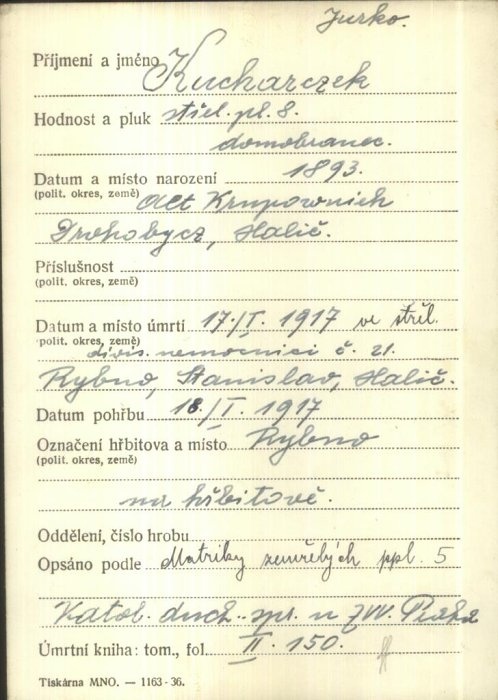 Jurko.
Příjmení a jméno Kucharczek
Hodnost a pluk střel. pl. 8.
domobranec.
Datum a místo narození 1893.
(polit. okres, země) Alt Krupownich
Drohobycz, Halič.
Příslušnost
(polit. okres, země)
Datum a místo úmrtí 17./I. 1917 ve střel.
(polit. okres, země) divis. nemocnici č. 21.
Rybno, Stanislav, Halič.
Datum pohřbu 18./I. 1917
Označení hřbitova a místo Rybno
(polit. okres, země)
na hřbitově.
Oddělení, číslo hrobu
Opsáno podle Matriky zemřelých ppl. 5
Katol. duch. spr. u ZVV. Praha
Úmrtní kniha: tom., fol. II. 150.
Tiskárna MNO. — 1163-36.